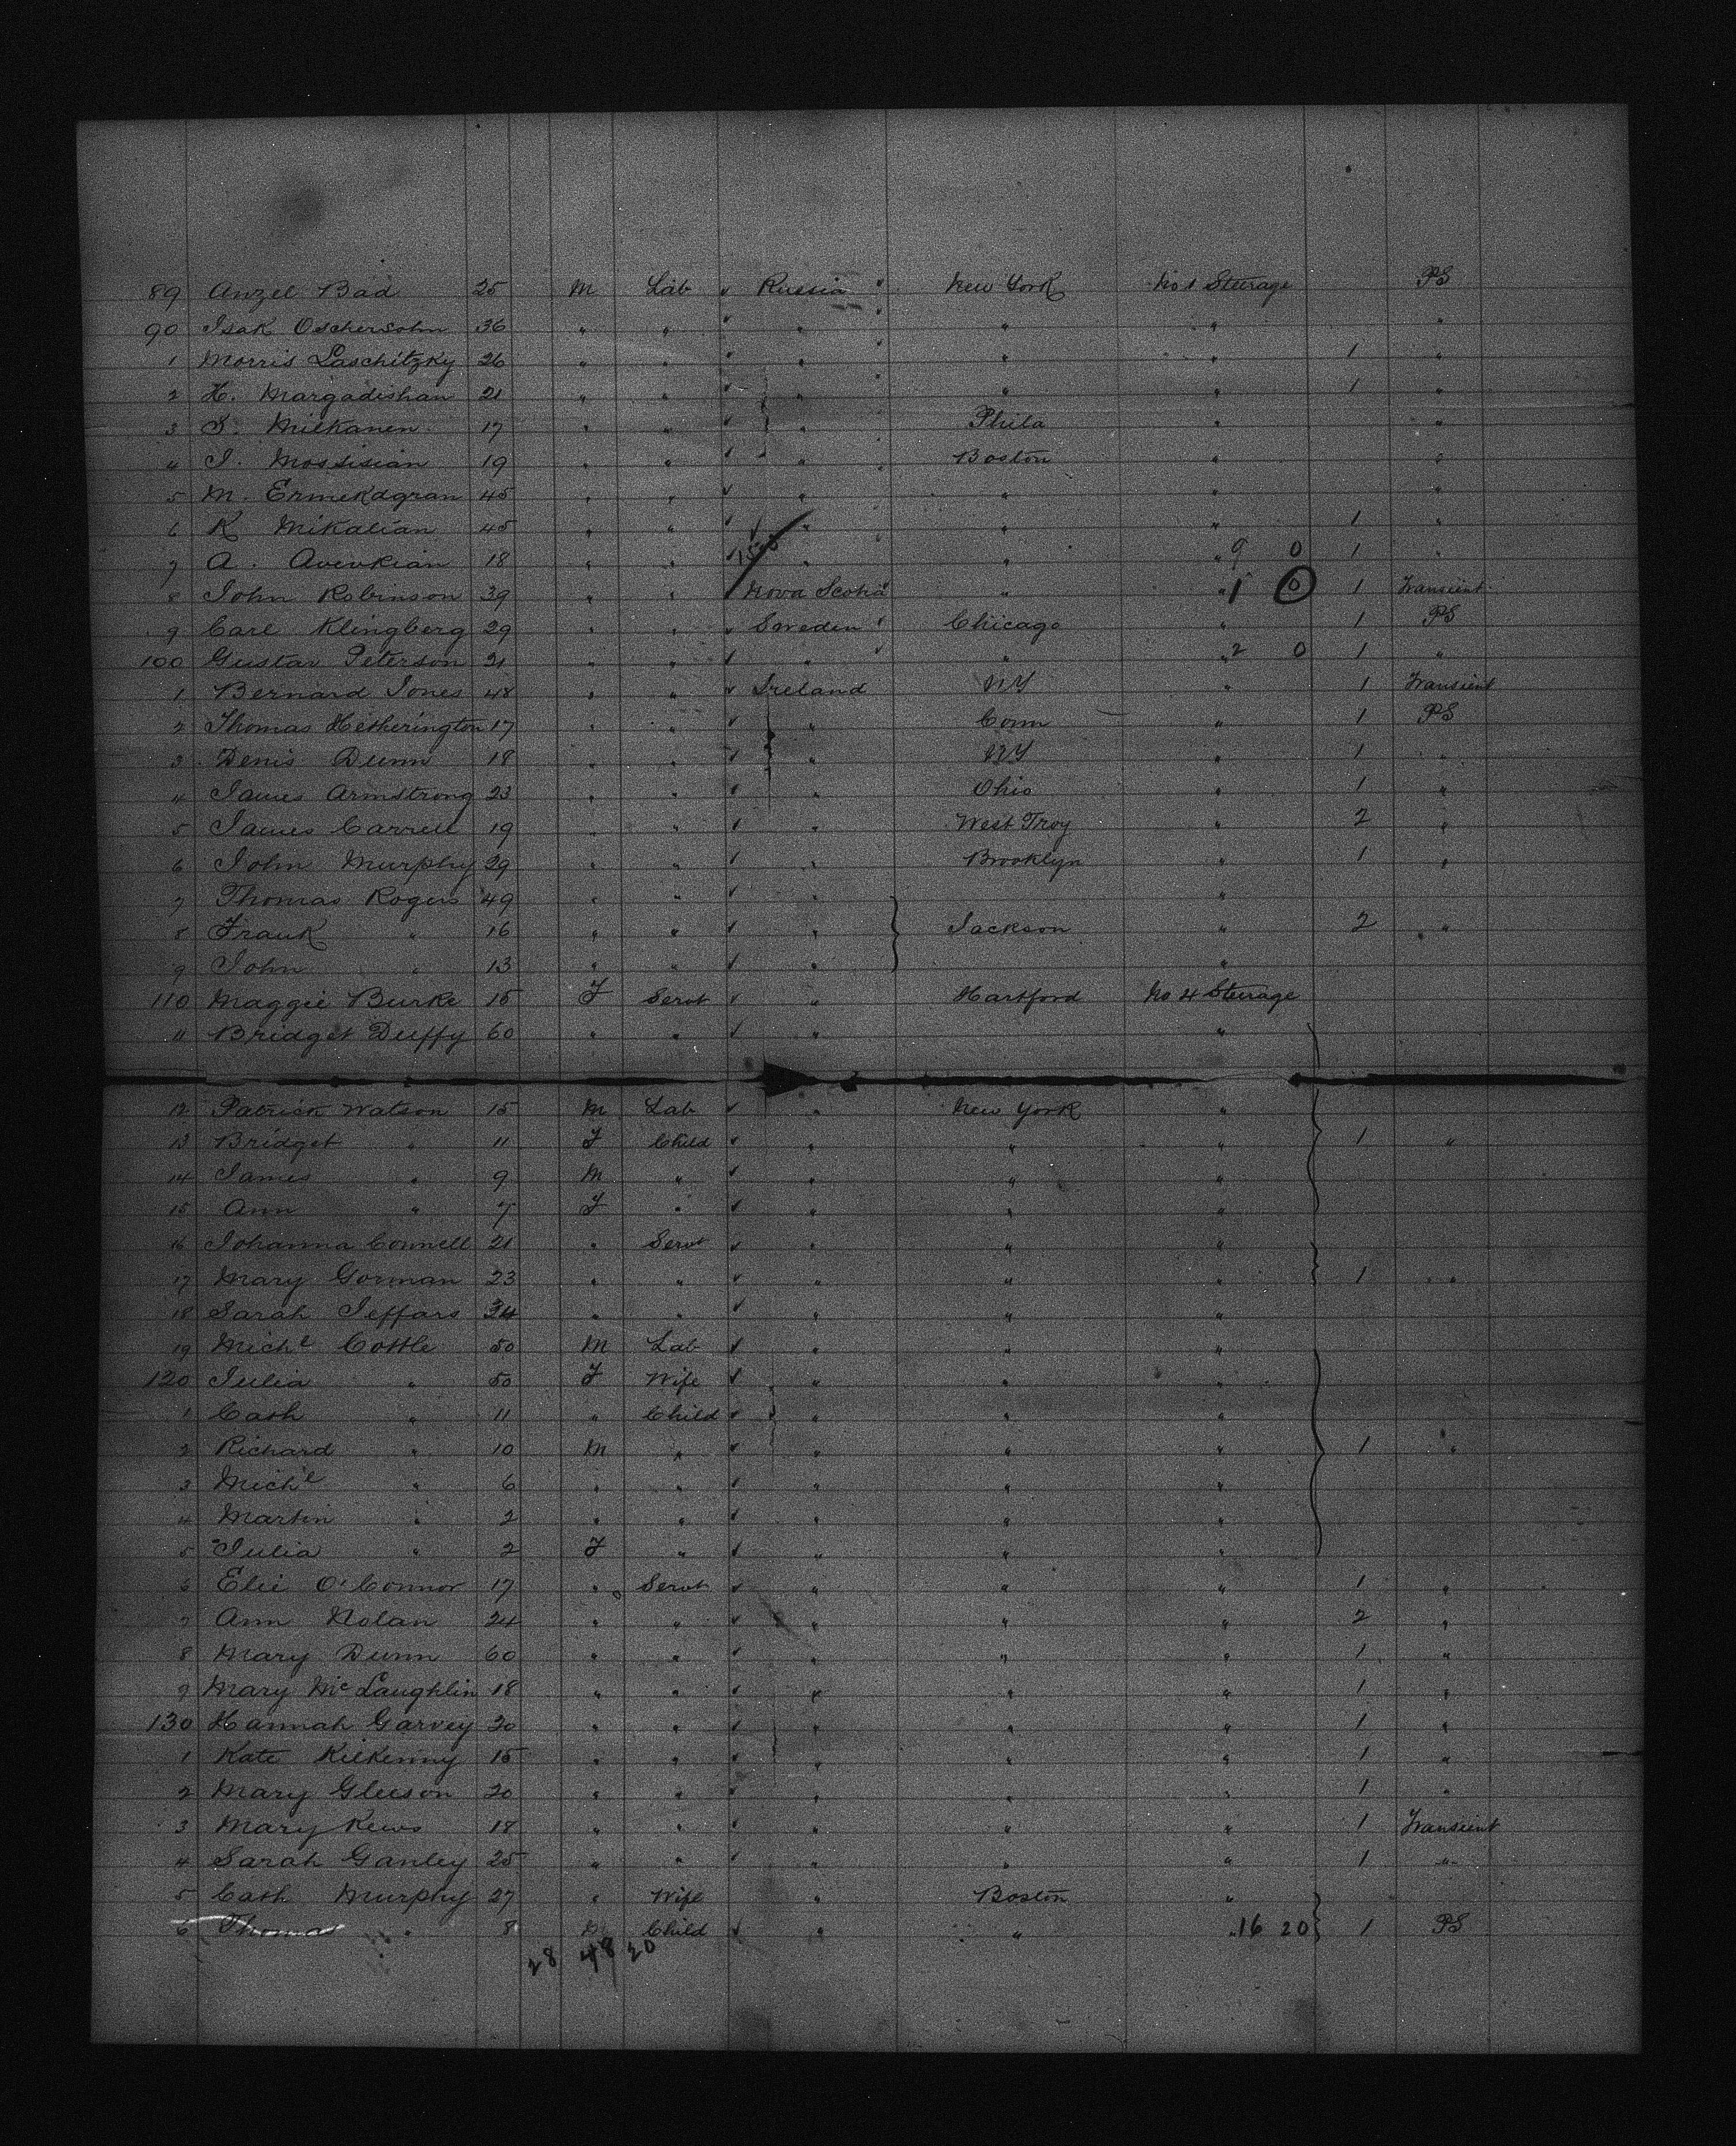 89 Anzel Bad 25 M Lab " Russia " New York No 1 Steurage PS
90 Isak Oschersohn 36 " " " " " " " "
1 Morris Laschitzky 26 " " " " " " " 1 "
2 H. Margadishan 21 " " " " " " " 1 "
3 S. Milkanen 17 " " " " Phila " "
4 I. Mossisian 19 " " " " " Boston " "
5 M. Ermekdgran 45 " " " " " " "
6 K Mikalian 45 " " " " " " 1 "
7 A. Avevkian 18 " " " " " " 9 0 1 "
8 John Robinson 39 " " Nova Scotia " " " 1 0 1 Transient
9 Carl Klingberg 29 " " " Sweden " Chicago " 1 PS
100 Gustav Peterson 21 " " " " " " 2 0 1 "
1 Bernard Jones 48 " " " Ireland NY " 1 Transient
2 Thomas Hetherington 17 " " " " Conn " 1 PS
3 Denis Dunn 18 " " " " NY " 1 "
4 James Armstrong 23 " " " " Ohio " 1 "
5 James Carrell 19 " " " " West Troy " 2 "
6 John Murphy 29 " " " " Brooklyn " 1 "
7 Thomas Rogers 49 " " " " "
8 Frank " 16 " " " " Jackson " 2 "
9 John " 13 " " " " "
110 Maggie Burke 15 F Servt " " Hartford No 4 Steurage
11 Bridget Duffy 60 " " " " "
12 Patrick Watson 15 M Lab " " New York "
13 Bridget " 11 F Child " " " " 1 "
14 James " 9 M " " " " "
15 Ann " 7 F " " " " "
16 Johanna Connell 21 " Servt " " " "
17 Mary Gorman 23 " " " " " " 1 "
18 Sarah Jeffars 34 " " " " " "
19 Michl Cottle 50 M Lab " " " "
120 Julia " 50 F Wife " " " "
1 Cath " 11 " Child " " " "
2 Richard " 10 M " " " " " 1 "
3 Michl " 6 " " " " " "
4 Martin " 2 " " " " " "
5 Julia " 2 F " " " " "
6 Elie O'Connor 17 " Servt " " " " 1 "
7 Ann Nolan 24 " " " " " " 2 "
8 Mary Dunn 60 " " " " " " 1 "
9 Mary McLaughlin 18 " " " " " " 1 "
130 Hannah Garvey 20 " " " " " " 1 "
1 Kate Kilkenny 15 " " " " " " 1 "
2 Mary Gleeson 20 " " " " " " 1 "
3 Mary Kews 18 " " " " " " 1 Transient
4 Sarah Ganley 25 " " " " " " 1 "
5 Cath Murphy 27 " Wife " Boston "
6 Thomas " 8 M Child " " " " 16 20 1 PS
28 48 20